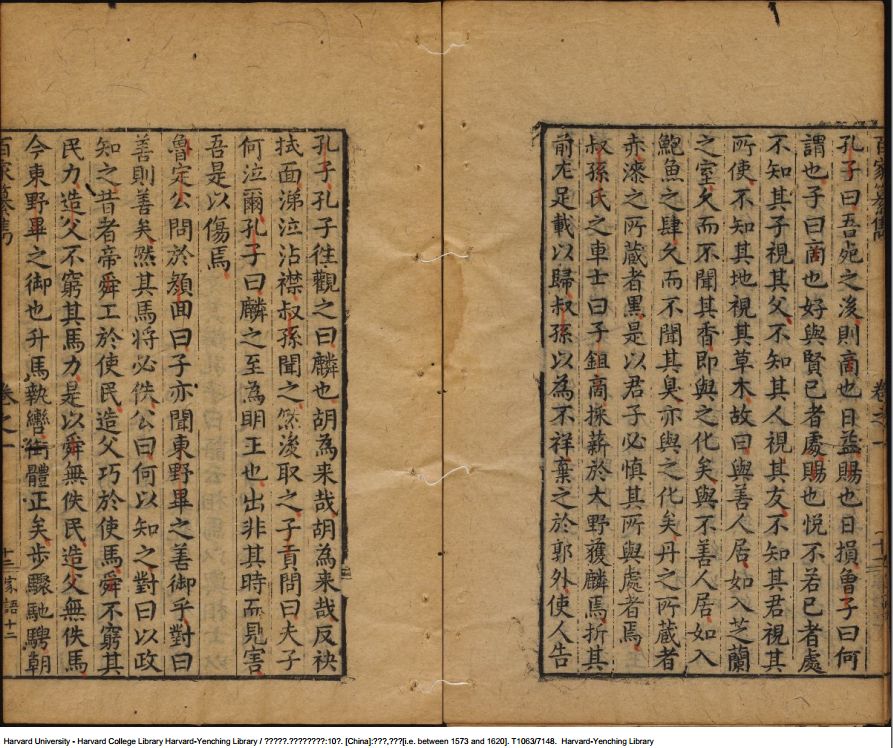 孔子曰吾死之後則商也日益賜也日損曾子曰何
謂也子曰商也好與賢己者處賜也悅不若己者處
不知其子視其父不知其人視其友不知其君視其
所使不知其地視其草木故曰與善人居如入芝蘭
之室久而不聞其香即與之化矣與不善人居如入
鮑魚之肆久而不聞其臭亦與之化矣丹之所藏者
赤漆之所藏者黑是以君子必慎其所與處者焉
叔孫氏之車士曰子鉏商採薪於大野獲麟焉折其
前左足載以歸叔孫以為不祥棄之於郭外使人告
孔子孔子徃觀之曰麟也胡為来哉胡為来哉反袂
拭面涕泣沾襟叔孫聞之然後取之子貢問曰夫子
何泣爾孔子曰麟之至為明王也出非其時而見害
吾是以傷焉
魯定公問於顏回曰子亦聞東野畢之善御乎對曰
善則善矣然其馬将必佚公曰何以知之對曰以政
知之昔者帝舜工於使民造父巧於使馬舜不窮其
民力造父不窮其馬力是以舜無佚民造父無佚馬
今東野畢之御也升馬執轡銜體正矣步驟馳騁朝
百家纂雋
卷之一
十二
家語十二
Harvard University - Harvard College Library Harvard-Yenching Library / ?????.????????:10?. [China]:???,???[i.e. between 1573 and 1620]. T1063/7148. Harvard-Yenching Library